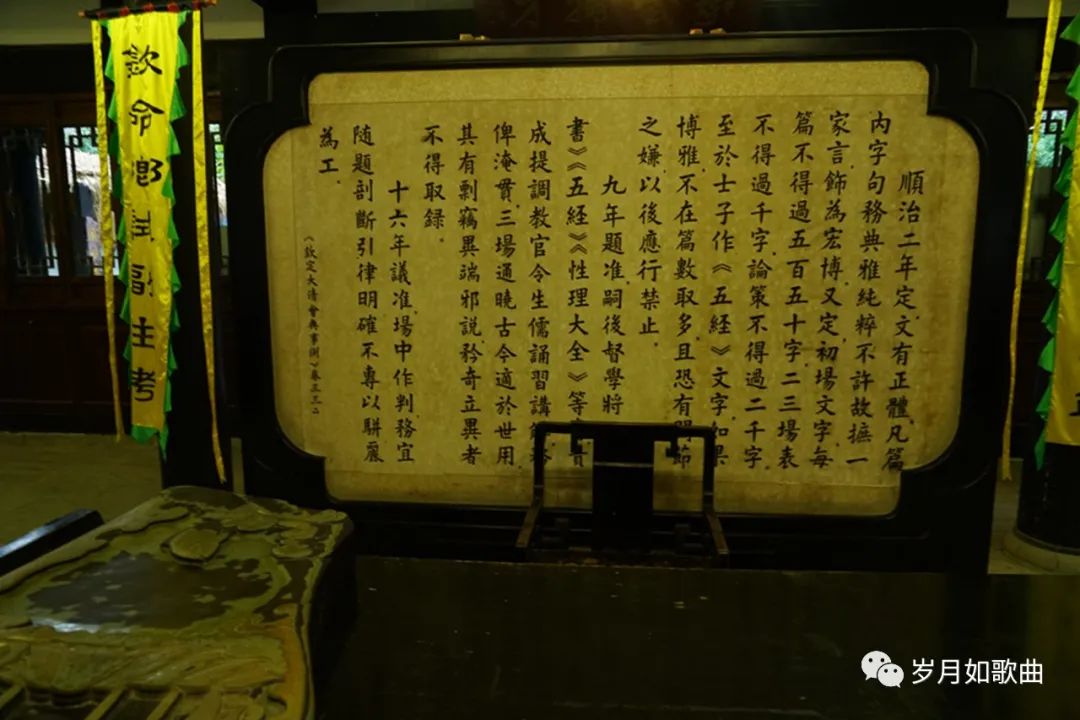 欽命鄉試副主考
順治二年定,文有正體,凡篇
内字句務典雅純粹不許故摭一
家言,飾為宏博,又定,初場文字,每
篇不得過五百五十字,二三場表
不得過千字,論策不得過二千字,
至於士子作《五經》文字,如果
博雅,不在篇數取多,且恐有關節
之嫌,以後應行禁止.
九年題准,嗣後督學將
書》《五經》《性理大全》等
成提調教官,令生儒誦習講
俾淹貫三場,通曉古今,適於世用,
其有剽竊異端邪說,矜奇立異者
不得取録.
十六年議准,場中作判,務宜
随題剖斷引律明確,不專以駢麗
為工.
《欽定大清會典事例》卷三三二
岁月如歌曲